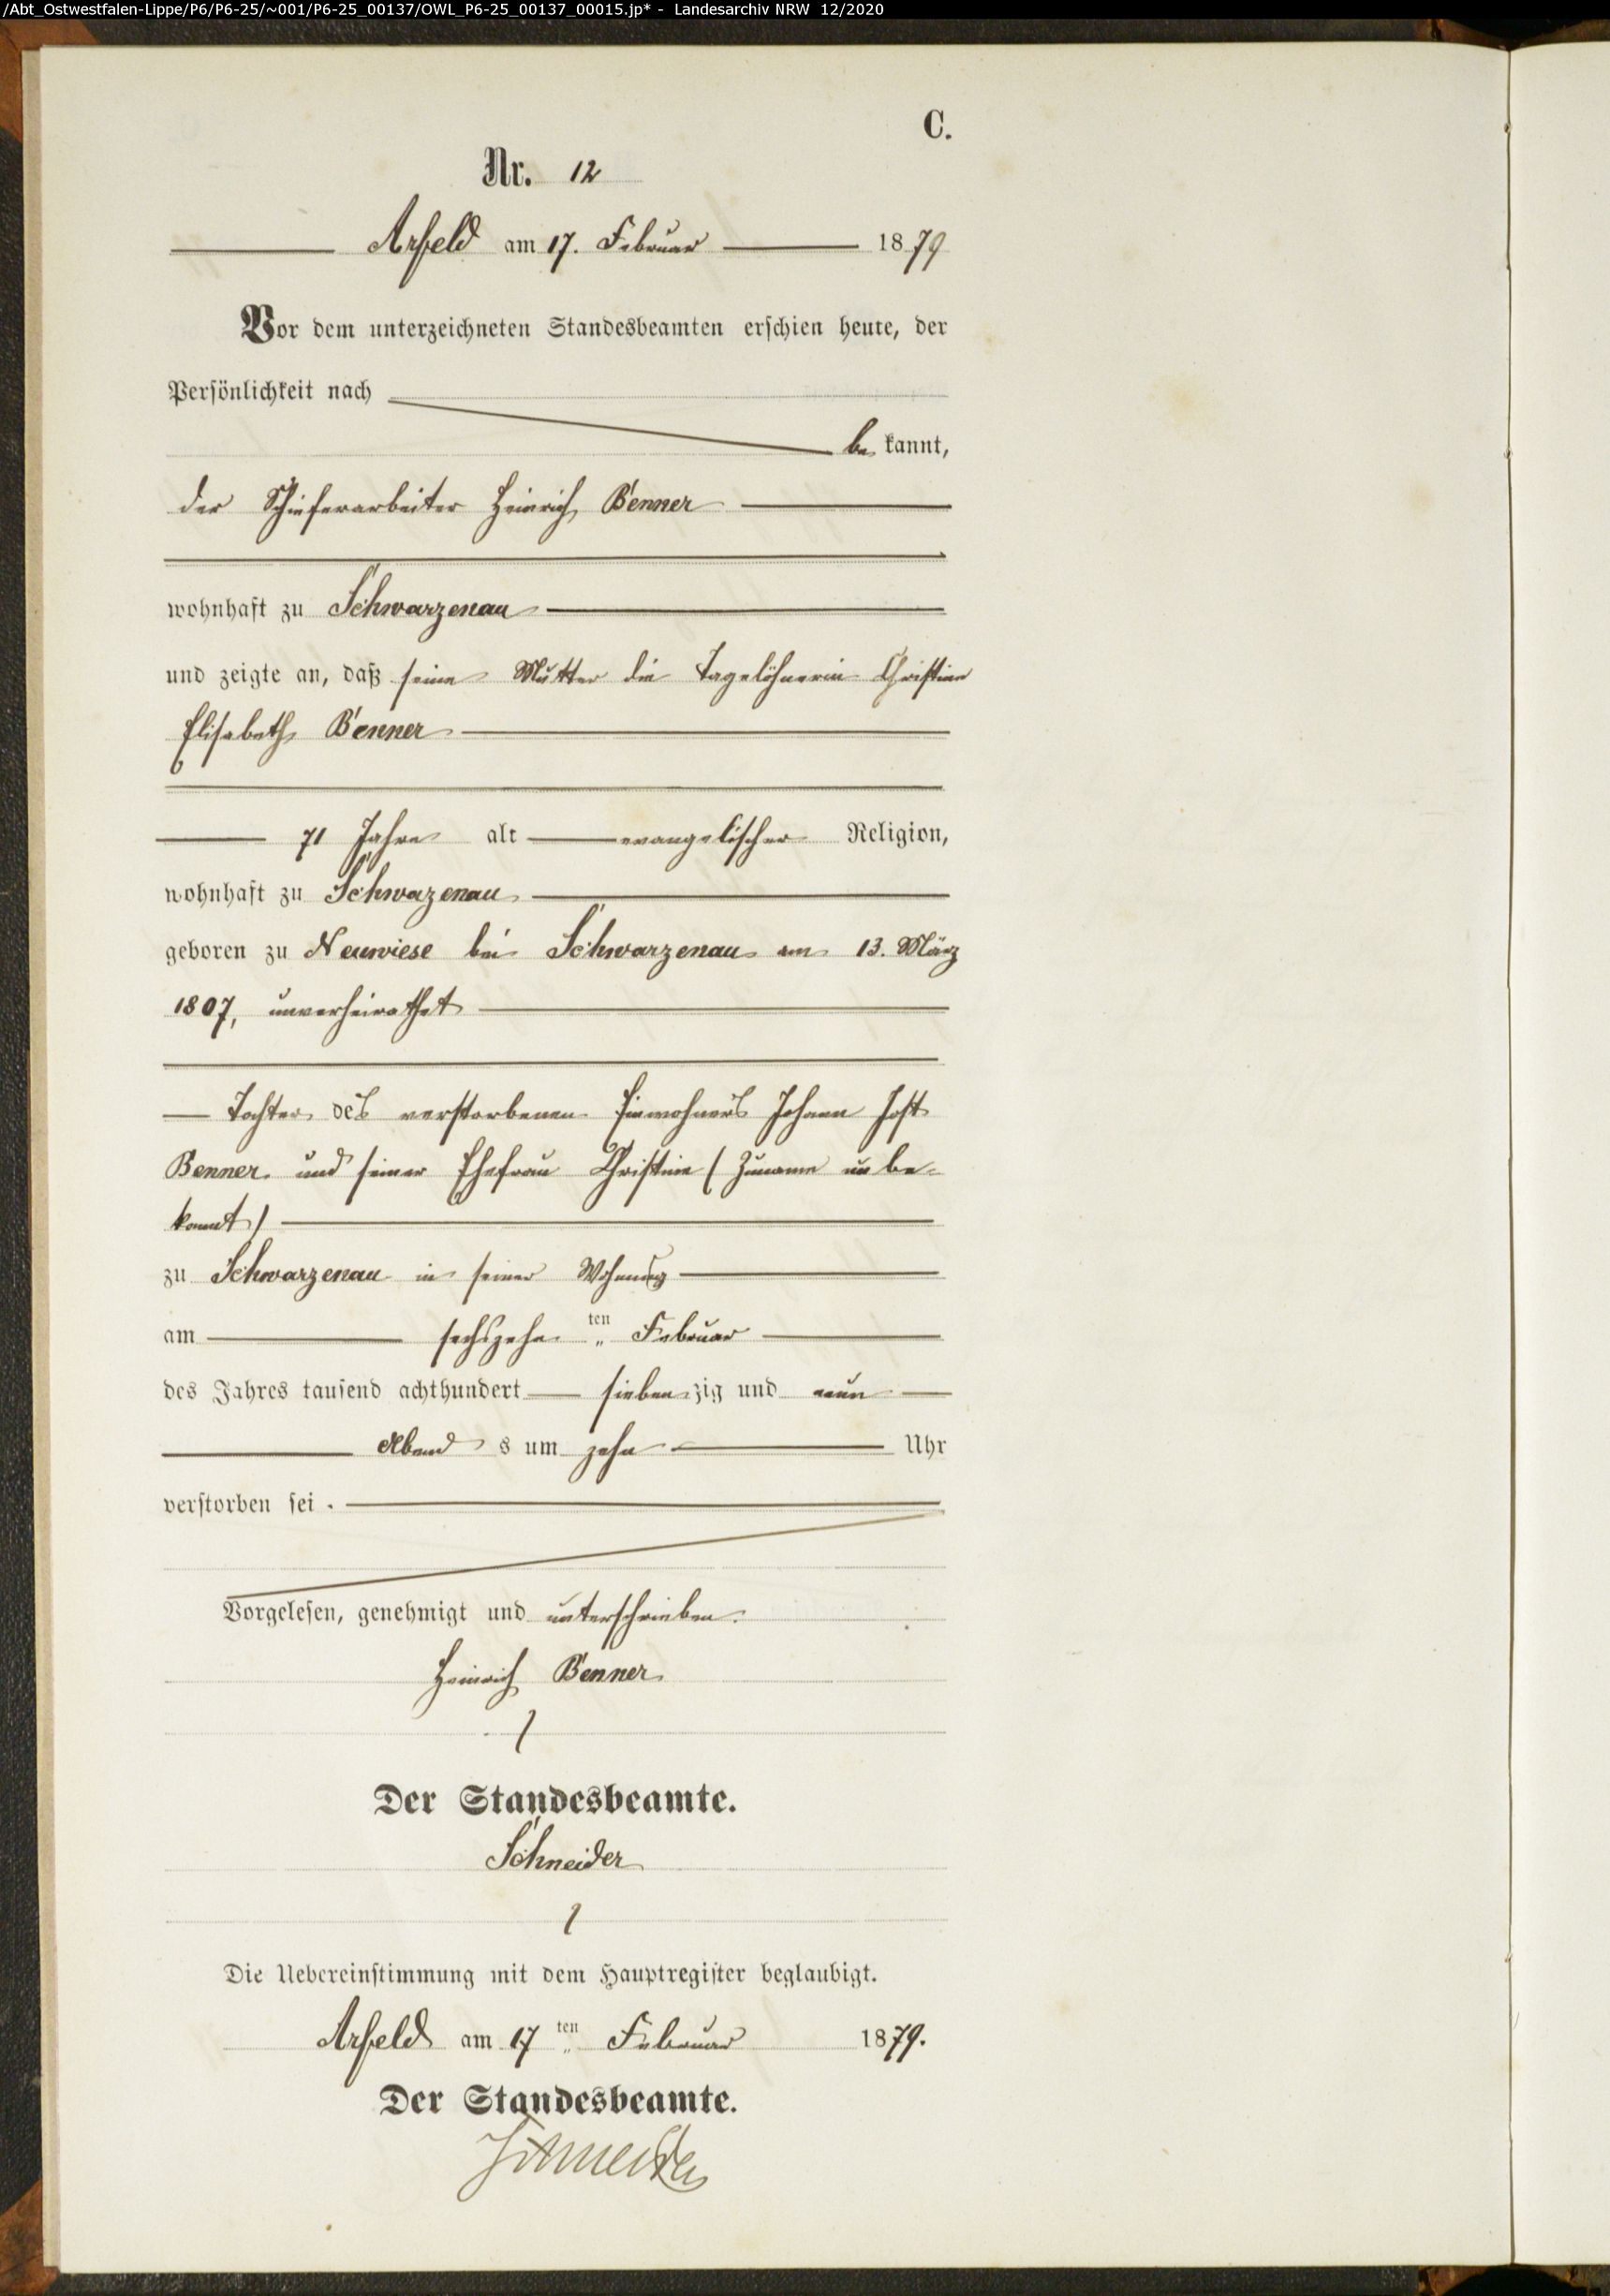 /Abt_Ostwestfalen-Lippe/P6/P6-25/~001/P6-25_00137/OWL_P6-25_00137_00015.jp* - Landesarchiv NRW 12/2020
C.
Nr. 12
Arfeld am 17. Februar 1879
Vor dem unterzeichneten Standesbeamten erschien heute, der
Persönlichkeit nach
be kannt,
der Schieferarbeiter Heinrich Benner
wohnhaft zu Schwarzenau
und zeigte an, daß seine Mutter die Tagelöhnerin Christine
Elisabeth Benner
71 Jahre alt evangelischer Religion,
wohnhaft zu Schwazenau
geboren zu Neuwiese bei Schwarzenau am 13. März
1807, unverheirathet
Tochter des verstorbenen Einwohners Johann Jost
Benner und seiner Ehefrau Christine (Zuname unbe-
kannt)
zu Schwarzenau in seiner Wohnung
am sechszehnten Februar
des Jahres tausend achthundert siebenzig und neun
Abends um zehn Uhr
verstorben sei.
Vorgelesen, genehmigt und unterschrieben.
Heinrich Benner
Der Standesbeamte.
Schneider
Die Uebereinstimmung mit dem Hauptregister beglaubigt.
Arfeld am 17ten Februar 1879.
Der Standesbeamte.
Schneider